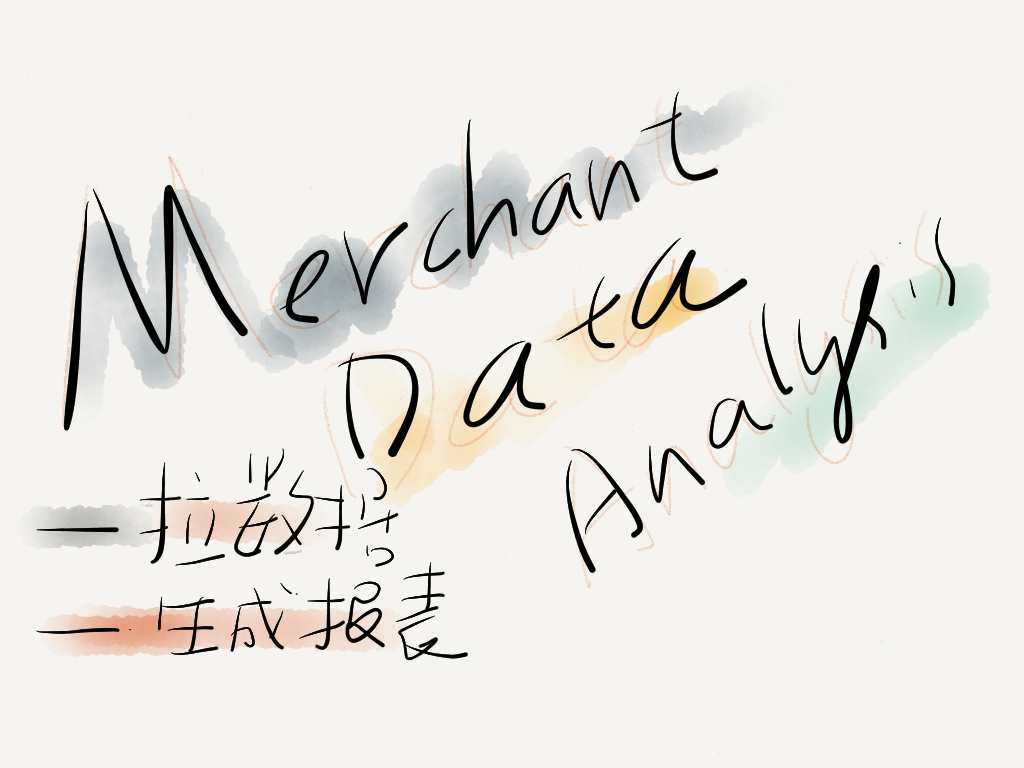 Merchant
Data
Analysis
— 拉数据
— 生成报表